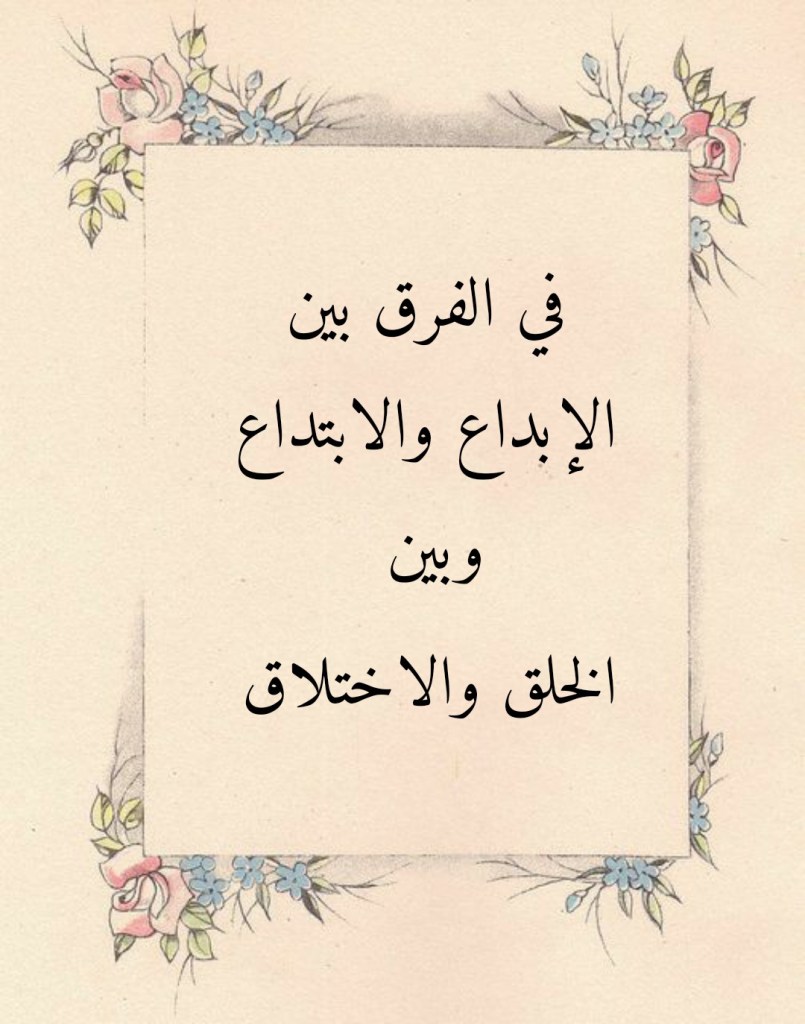 في الفرق بين
الإبداع والابتداع
وبين
الخلق والاختلاق